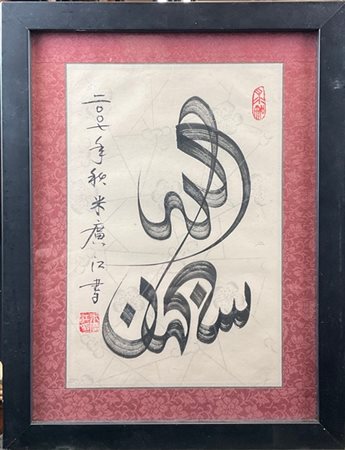 سبحان الله
二〇〇七年秋米廣江書